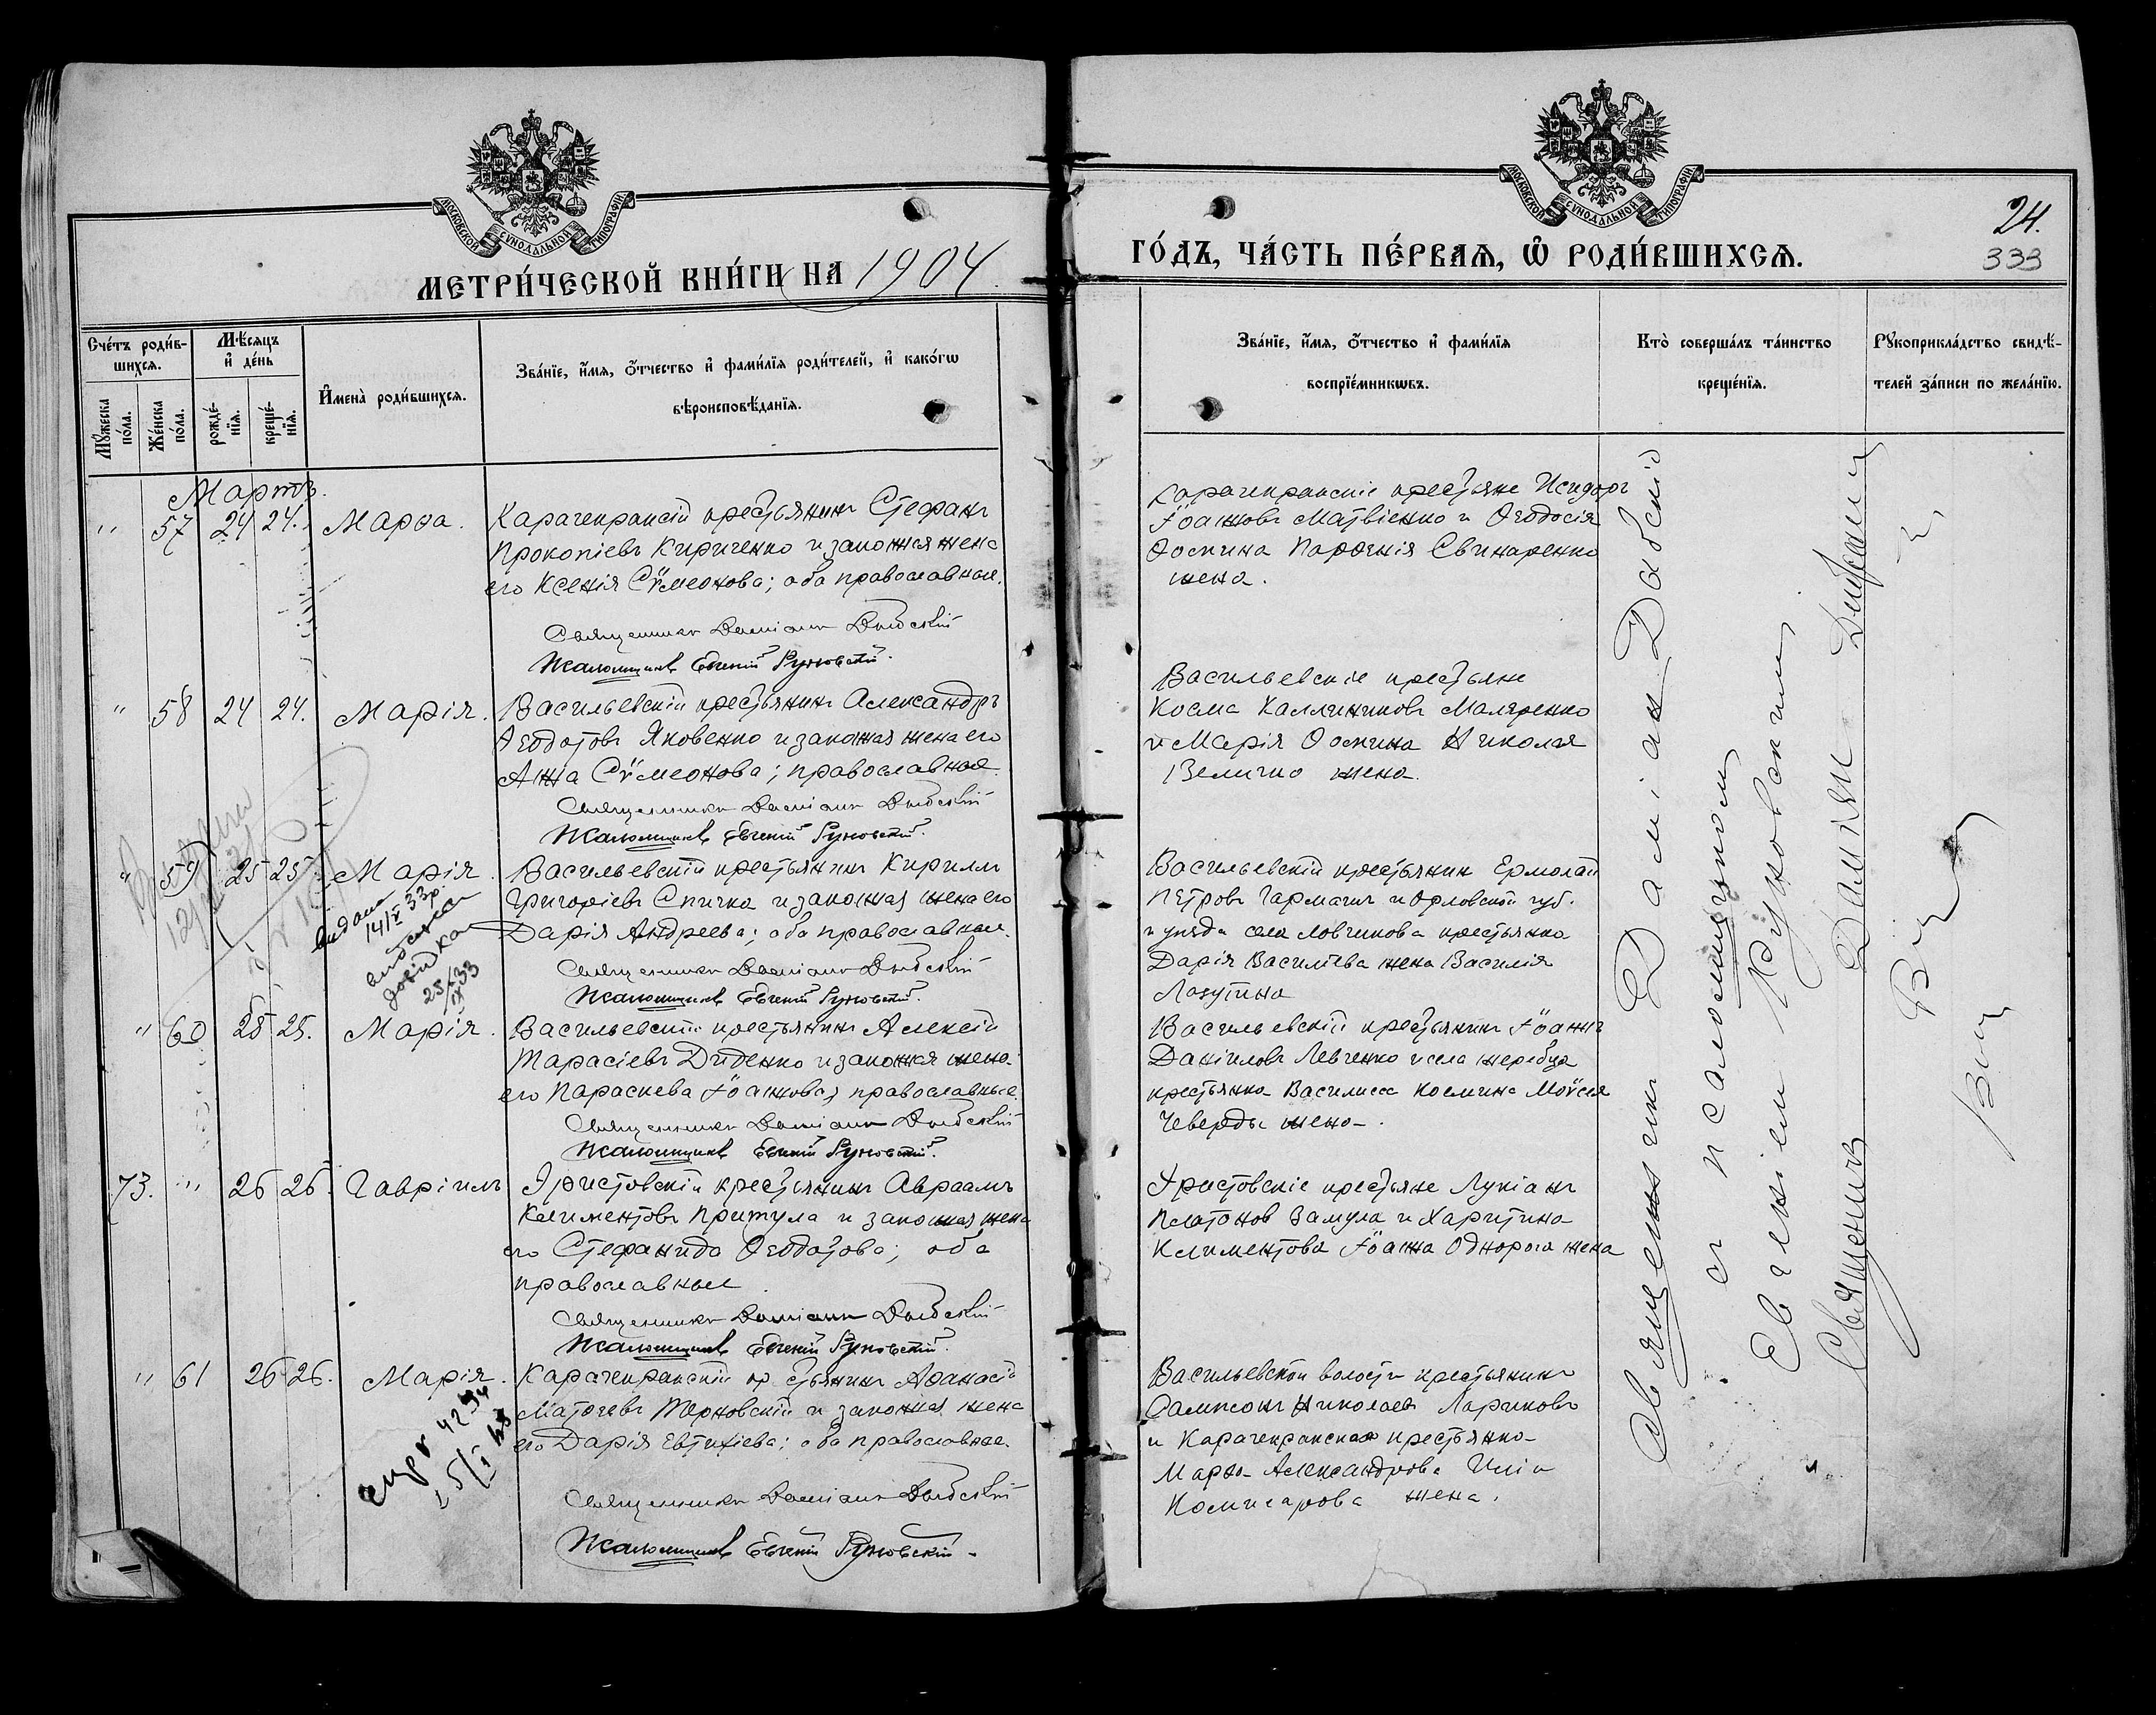 МОСКОВСКОЙ СѴНОДАЛЬНОЙ ТИПОГРАФІИ
МЕТРИ́ЧЕСКОЙ КНИ́ГИ НА 1904
Сче́тъ роди́вшихся.
Му́жеска по́ла.
Же́нска по́ла.
Мѣ́сяцъ и де́нь
рожде́нїя.
креще́нїя.
И҆мена̀ роди́вшихся.
Зва́нїе, и҆́мя, ѻ҆́тчество и҆ фами́лїя роди́телей, и҆ како́гѡ
вѣроисповѣ́данїя.
Мартъ.
" 57 24 24. Марѳа.
Карачекракскій крестьянинъ Стефанъ
Прокопіевъ Кириченко и законная жена
его Ксенія Сѵмеонова; оба православные.
Священникъ Даміанъ Дабскій
Псаломщикъ Евгеній Руновскій.
" 58 24 24. Марія.
Васильевскій крестьянинъ Александръ
Ѳеодотовъ Яковенко и законная жена его
Анна Сѵмеонова; православные.
Священникъ Даміанъ Дабскій
Псаломщикъ Евгеній Руновскій.
" 59 25 25 Марія.
видана
14/X 33р.
виписка
довідкая
25/IX 33
Васильевскій крестьянинъ Кириллъ
Григоріевъ Спичка и законная жена его
Дарія Андреева; оба православные.
Священникъ Даміанъ Дабскій
Псаломщикъ Евгеній Руновскій.
" 60 25 25. Марія.
Васильевскій крестьянинъ Алексій
Тарасіевъ Диденко и законная жена
его Параскева Іоаннова; православные.
Священникъ Даміанъ Дабскій
Псаломщикъ Евгеній Руновскій.
73. " 26 26. Гавріилъ
Эристовскій крестьянинъ Авраамъ
Климентовъ Притула и законная жена
его Стефанида Ѳеодотова; оба
православные.
Священникъ Даміанъ Дабскій
Псаломщикъ Евгеній Руновскій.
" 61 26 26. Марія.
Карачекракскій крестьянинъ Аѳанасій
Матѳеевъ Терновскій и законная жена
его Дарія Евтихіева; оба православные.
Священникъ Даміанъ Дабскій
Псаломщикъ Евгеній Руновскій.
МОСКОВСКОЙ СѴНОДАЛЬНОЙ ТИПОГРАФІИ
24.
333
ГО́ДЪ, ЧА́СТЬ ПЕ́РВАЯ, Ѽ РОДИ́ВШИХСЯ.
Зва́нїе, и҆́мя, ѻ҆́тчество и҆ фами́лїя
воспрїе́мникѡвъ.
Кто̀ соверша́лъ та́инство
креще́нїя.
Рꙋкоприкла́дство свидѣ́-
телей за́писи по жела́нїю.
Карачекракскіе крестьяне Исидоръ
Іоанновъ Матвіенко и Ѳеодосія
Ѳомина Парѳенія Свинаренко
жена.
Васильевскіе крестьяне
Косма Каллиниковъ Маляренко
и Марія Ѳомина Николая
Величко жена.
Васильевскій крестьянин Ермолай
Петровъ Гармашъ и Орловской губ.
и уезда села Ловчикова крестьянка
Дарія Васильева жена Василія
Лазутина
Васильевскій крестьянинъ Іоаннъ
Даніиловъ Левченко и села жеребца
крестьянка Василисса Космина Моѵсея
Чеверды жена.
Эристовскіе крестьяне Лукіанъ
Платонов Замула и Харитина
Климентова Іоанна Однорога жена
Васильевской волости крестьянинъ
Сампсонъ Николаевъ Лариковъ
и Карачекракская крестьянка
Марѳа Александрова Иліи
Комисарова жена.
Священникъ Даміан Дабскій
съ псаломщикомъ
Евгеніемъ Руновскимъ
Священникъ Даміанъ